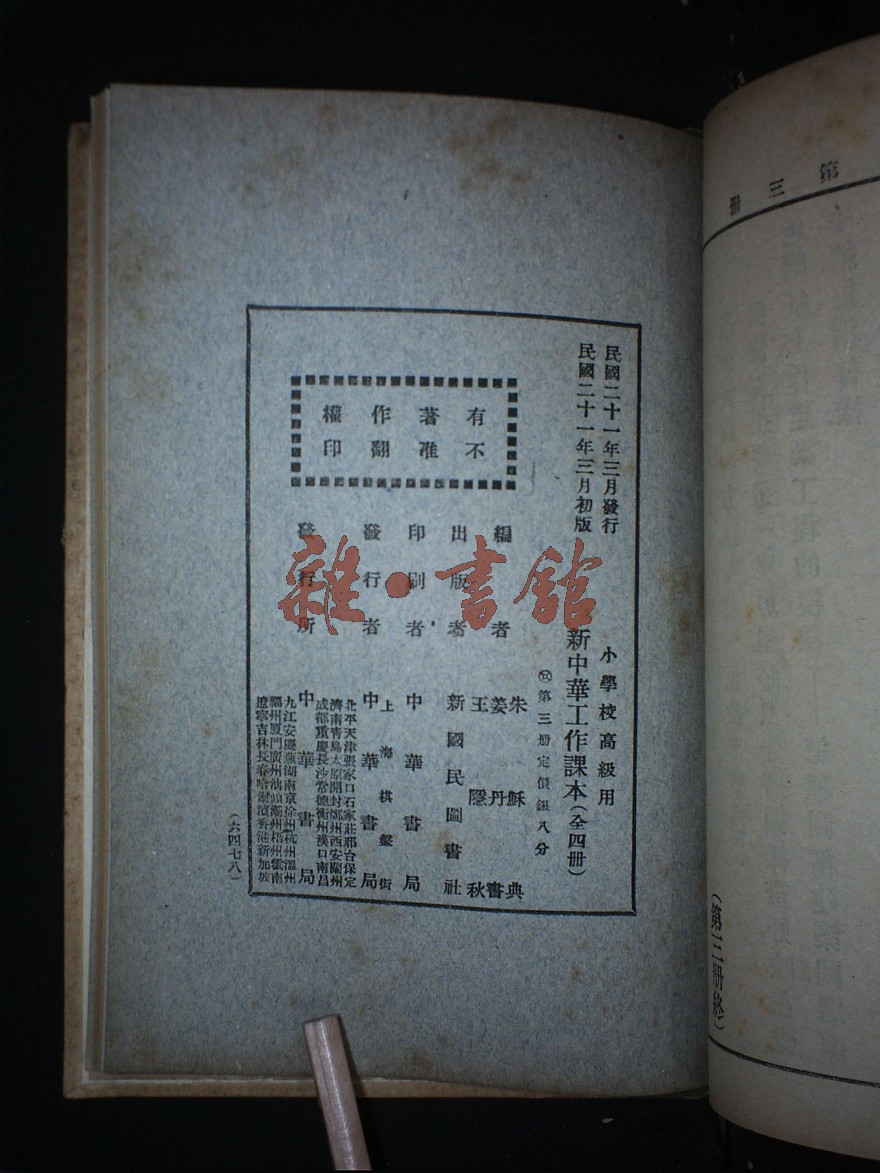 第三册
(第三册終)
民國二十一年三月發行
民國二十一年三月初版
小學校高級用
新中華工作課本(全四册)
第三册定價銀八分
有著作權
不准翻印
編者
朱穌典
姜丹書
王隱秋
出版者
新國民圖書社
印刷者
中華書局
發行者
上海棋盤街
中華書局
發行所
中華書局
北平天津張家口石家莊邢台保定
濟南青島太原開封鄭州西安蘭州
成都重慶長沙常德衡州漢口南昌
九江安慶蕪湖南京徐州杭州溫州
福州厦門廣州汕頭潮州梧州雲南
遼寧吉林長春哈爾濱香港新加坡
(六四七八)
雜·書館